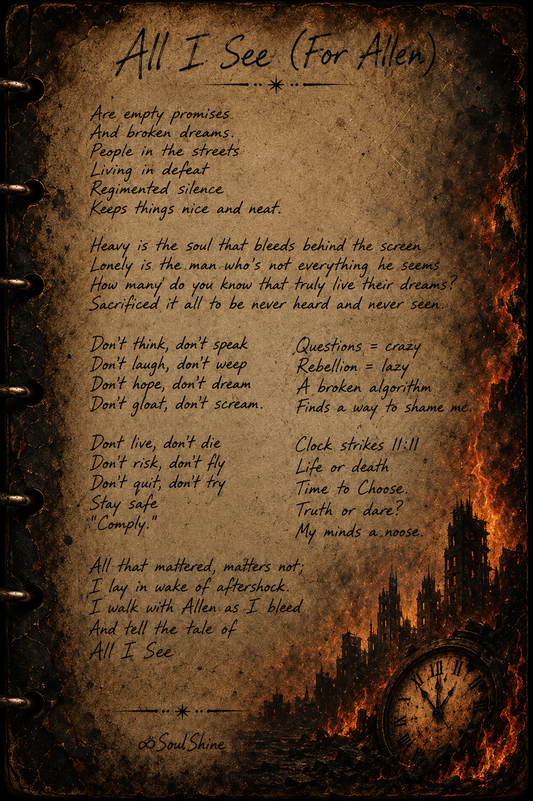 All I See (For Allen)
Are empty promises
And broken dreams.
People in the streets
Living in defeat
Regimented silence
Keeps things nice and neat.
Heavy is the soul that bleeds behind the screen
Lonely is the man who's not everything he seems
How many do you know that truly live their dreams?
Sacrificed it all to be never heard and never seen.
Don't think, don't speak
Don't laugh, don't weep
Don't hope, don't dream
Don't gloat, don't scream.
Dont live, don't die
Don't risk, don't fly
Don't quit, don't try
Stay safe
"Comply."
Questions = crazy
Rebellion = lazy
A broken algorithm
Finds a way to shame me.
Clock strikes 11:11
Life or death
Time to Choose.
Truth or dare?
My minds a noose.
All that mattered, matters not;
I lay in wake of aftershock.
I walk with Allen as I bleed
And tell the tale of
All I See
∞SoulShine